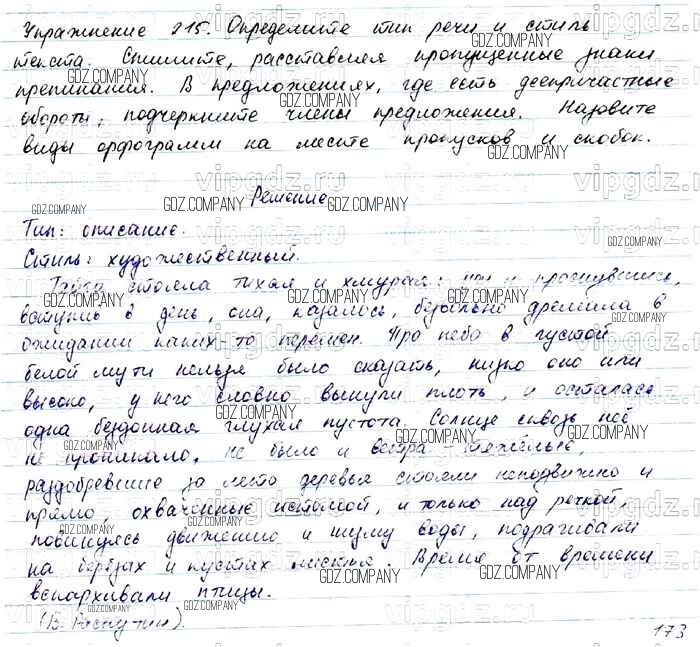 Упражнение 215. Определите тип речи и стиль
текста. Спишите, расставляя пропущенные знаки
препинания. В предложениях, где есть деепричастные
обороты, подчеркните члены предложения. Назовите
виды орфограмм на месте пропусков и скобок.
Решение
Тип: описание.
Стиль: художественный.
Тайга стояла тихая и хмурая: проснувшись,
вступив в день, она, казалось, безвольно дремала в
ожидании каких-то перемен. Про небо в густой
белой мути нельзя было сказать, низко оно или
высоко, у него словно вынули плоть, и осталась
одна бездонная глухая пустота. Солнце сквозь неё
не проникало, не было и ветра тяжёлые,
раздобревшие за лето деревья стояли неподвижно и
прямо, охваченные истомой, и только над речкой,
повинуясь движению и шуму воды, подрагивали
на берёзах и кустах листья. Время от времени
вспархивали птицы.
(В. Распутин).
173